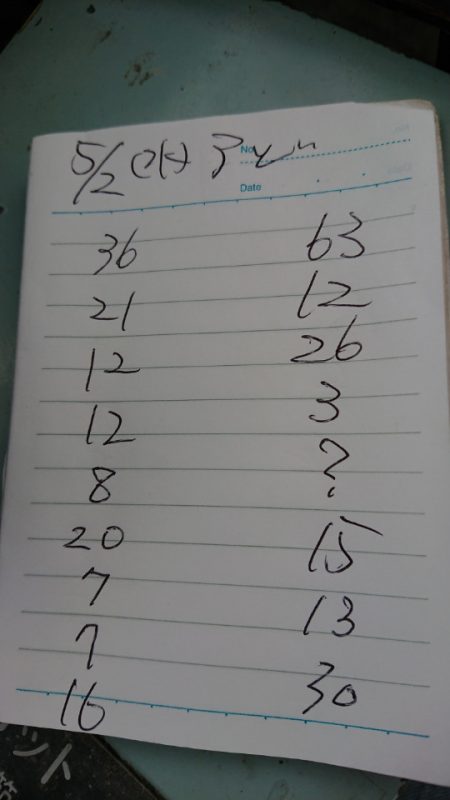 No.
5/2
Date
36 63
21 12
12 26
12 3
8 ?
20 15
7 13
7
16 30
ット